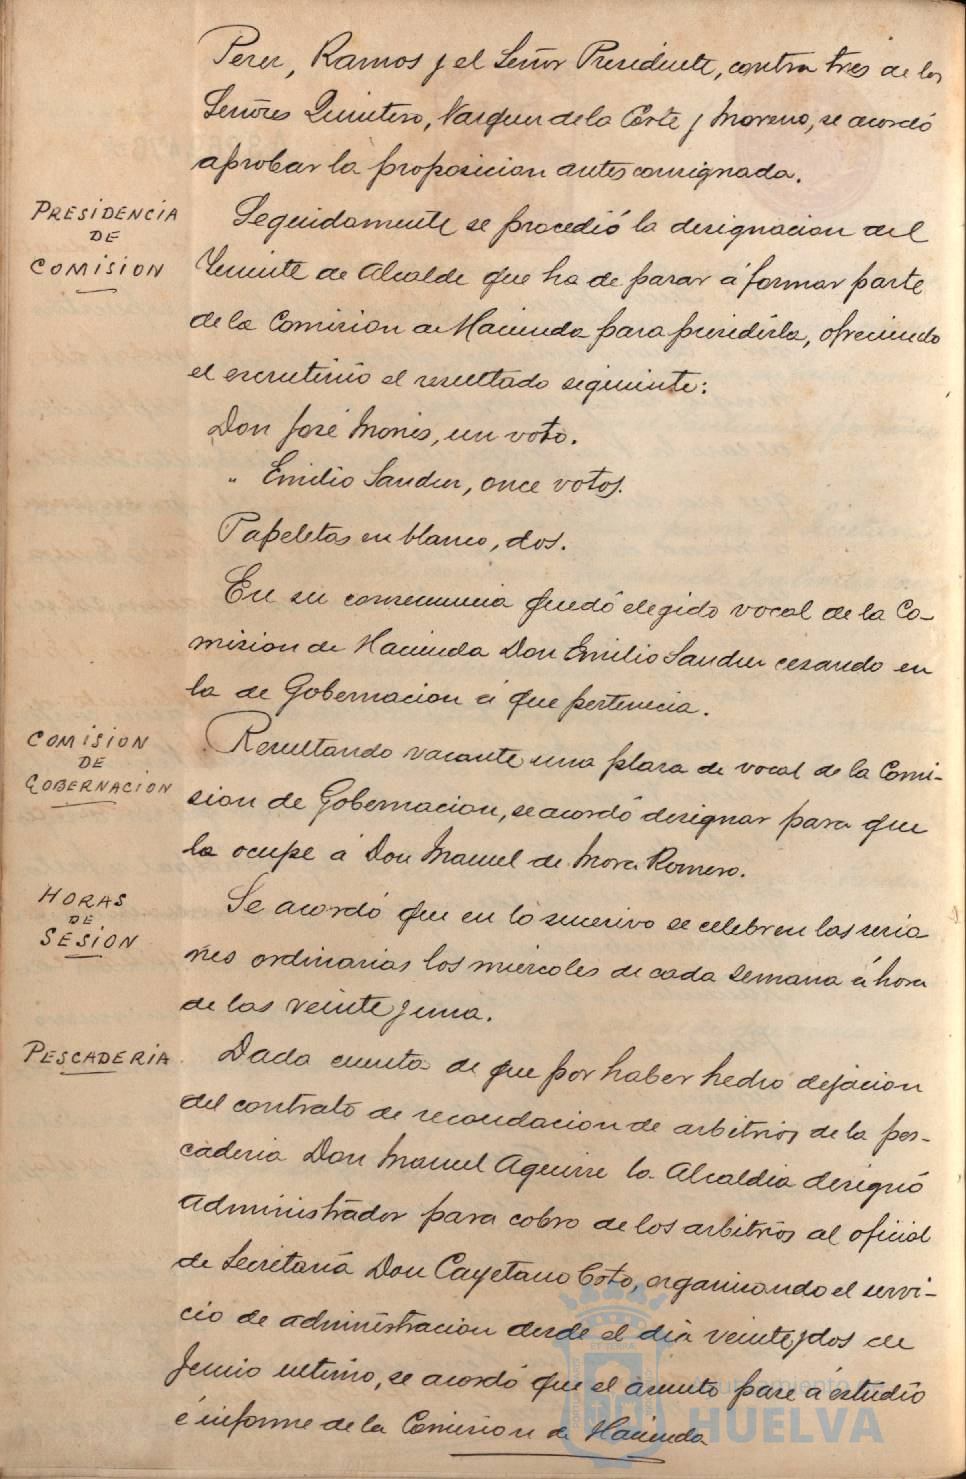 Perez, Ramos y el Señor Presidente, contra tres de los
Señores Quintero, Vazquez de la Corte y Moreno, se acordó
aprobar la proposicion antes consignada.
PRESIDENCIA
DE
COMISION
Seguidamente se procedió la designacion del
Teniente de Alcalde que ha de pasar á formar parte
de la Comision de Hacienda para presidirla, ofreciendo
el escrutinio el resultado siguiente:
Don José Monis, un voto.
" Emilio Sandez, once votos.
Papeletas en blanco, dos.
En su consecuencia quedó elegido vocal de la Co-
mision de Hacienda Don Emilio Sandez cesando en
la de Gobernacion á que pertenecia.
COMISION
DE
GOBERNACION
Resultando vacante una plaza de vocal de la Comi-
sion de Gobernacion, se acordó designar para que
la ocupe á Don Manuel de Mora Romero.
HORAS
DE
SESION
Se acordó que en lo sucesivo se celebren las sesio
nes ordinarias los miercoles de cada semana á hora
de las veinte y una.
PESCADERIA
Dada cuenta de que por haber hecho dejacion
del contrato de recaudacion de arbitrios de la pes-
caderia Don Manuel Aguirre la Alcaldia designó
Administrador para cobro de los arbitrios al oficial
de Secretaria Don Cayetano Coto, organizando el servi-
cio de administracion desde el dia veinte y dos de
Junio ultimo, se acordó que el asunto pase á estudio
é informe de la Comision de Hacienda
Ayuntamiento de
HUELVA